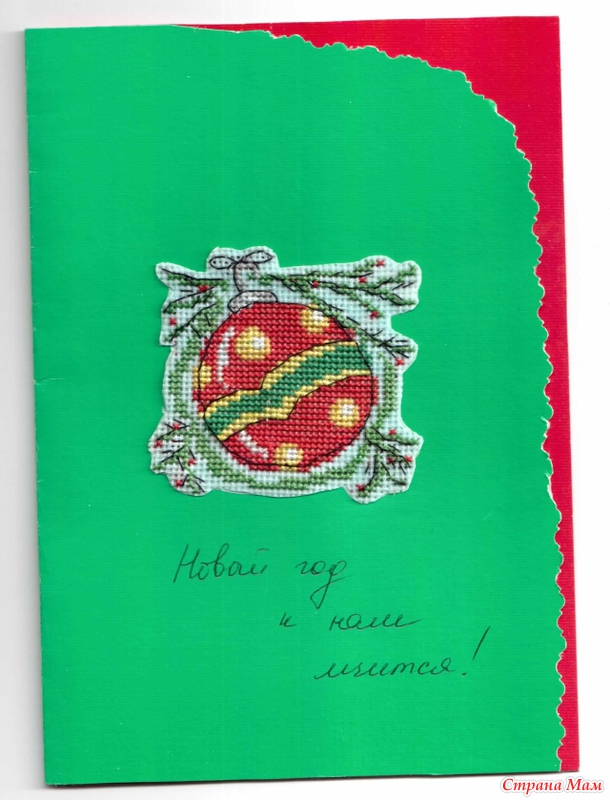 Новый год
к нам
мчится!
Страна Мам